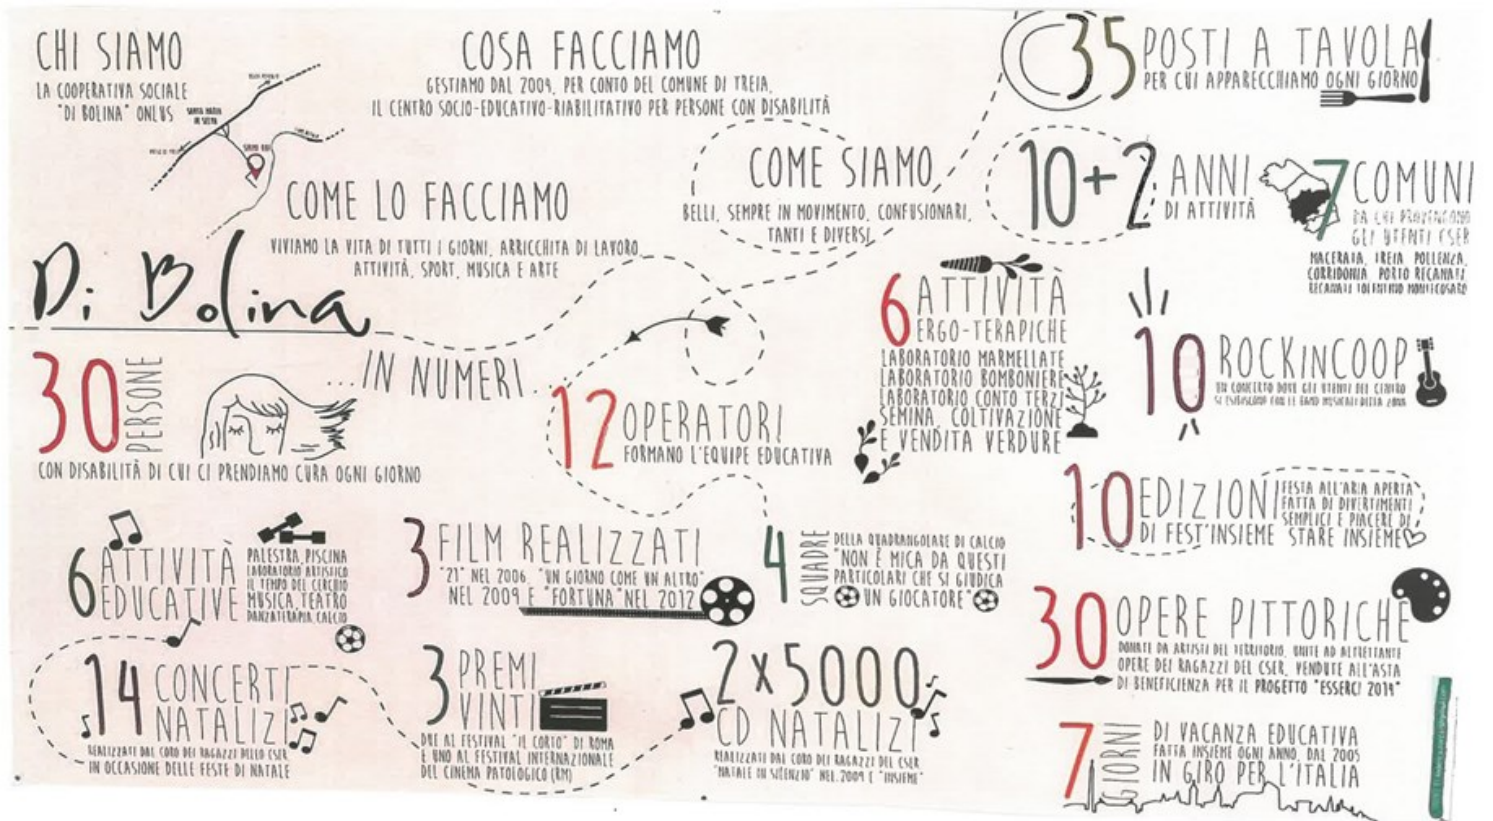 CHI SIAMO
LA COOPERATIVA SOCIALE
"DI BOLINA" ONLUS
SANTA MARIA
IN SELVA
COSA FACCIAMO
GESTIAMO DAL 2009, PER CONTO DEL COMUNE DI TREIA,
IL CENTRO SOCIO-EDUCATIVO-RIABILITATIVO PER PERSONE CON DISABILITÀ
COME LO FACCIAMO
VIVIAMO LA VITA DI TUTTI I GIORNI, ARRICCHITA DI LAVORO,
ATTIVITÀ, SPORT, MUSICA E ARTE
COME SIAMO
BELLI, SEMPRE IN MOVIMENTO, CONFUSIONARI,
TANTI E DIVERSI
35 POSTI A TAVOLA
PER CUI APPARECCHIAMO OGNI GIORNO
10+2 ANNI
DI ATTIVITÀ
7 COMUNI
DA CUI PROVENGONO
GLI UTENTI CSER
MACERATA, TREIA POLLENZA,
CORRIDONIA PORTO RECANATI
RECANATI TOLENTINO MONTECOSARO
Di Bolina
...IN NUMERI...
30 PERSONE
CON DISABILITÀ DI CUI CI PRENDIAMO CURA OGNI GIORNO
12 OPERATORI
FORMANO L'EQUIPE EDUCATIVA
6 ATTIVITÀ
ERGO-TERAPICHE
LABORATORIO MARMELLATE
LABORATORIO BOMBONIERE
LABORATORIO CONTO TERZI
SEMINA, COLTIVAZIONE
E VENDITA VERDURE
10 ROCKINCOOP
UN CONCERTO DOVE GLI UTENTI DEL CENTRO
SI ESIBISCONO CON LE BAND MUSICALI DELLA ZONA
10 EDIZIONI
DI FEST'INSIEME
FESTA ALL'ARIA APERTA
FATTA DI DIVERTIMENTI
SEMPLICI E PIACERE DI
STARE INSIEME
6 ATTIVITÀ
EDUCATIVE
PALESTRA, PISCINA
LABORATORIO ARTISTICO
IL TEMPO DEL CERCHIO
MUSICA, TEATRO
DANZATERAPIA CALCIO
3 FILM REALIZZATI
"21" NEL 2006, "UN GIORNO COME UN ALTRO"
NEL 2009 E "FORTUNA" NEL 2012
4 SQUADRE
DELLA QUADRANGOLARE DI CALCIO
"NON È MICA DA QUESTI
PARTICOLARI CHE SI GIUDICA
UN GIOCATORE"
30 OPERE PITTORICHE
DONATE DA ARTISTI DEL TERRITORIO, UNITE AD ALTRETTANTE
OPERE DEI RAGAZZI DEL CSER, VENDUTE ALL'ASTA
DI BENEFICIENZA PER IL PROGETTO "ESSERCI 2014"
14 CONCERTI
NATALIZI
REALIZZATI DAL CORO DEI RAGAZZI DELLO CSER
IN OCCASIONE DELLE FESTE DI NATALE
3 PREMI
VINTI
DUE AL FESTIVAL "IL CORTO" DI ROMA
E UNO AL FESTIVAL INTERNAZIONALE
DEL CINEMA PATOLOGICO (RM)
2x5000
CD NATALIZI
REALIZZATI DAL CORO DEI RAGAZZI DEL CSER
"NATALE IN SILENZIO" NEL 2009 E "INSIEME"
7 GIORNI
DI VACANZA EDUCATIVA
FATTA INSIEME OGNI ANNO, DAL 2005
IN GIRO PER L'ITALIA